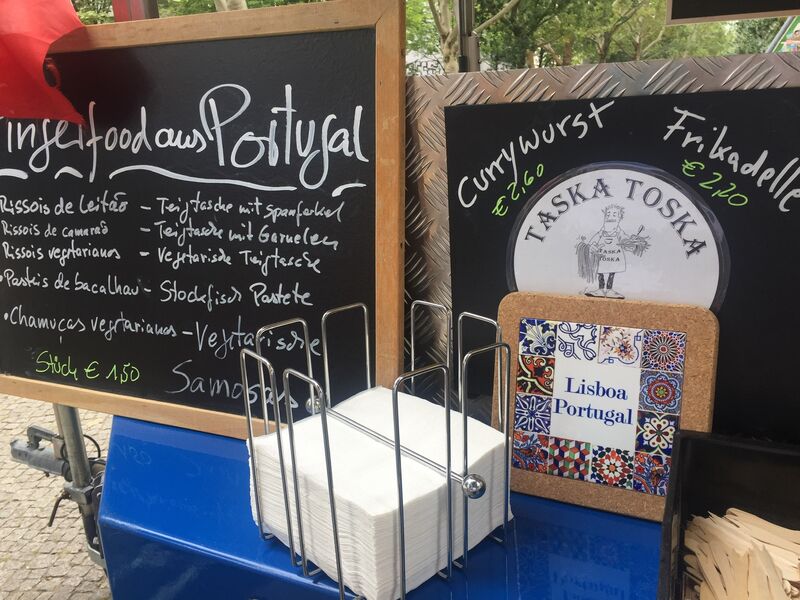 Fingerfood aus Portugal
Rissois de Leitão - Teigtasche mit Spanferkel
Rissois de camarão - Teigtasche mit Garnelen
Rissois vegetarianos - Vegetarische Teigtasche
• Pasteis de bacalhau - Stockfisch Pastete
• Chamuças vegetarianos - Vegetarische
Samosas
Stück € 1,50
Currywurst
€ 2,60
Frikadelle
€ 2,20
TASKA TOSKA
TASKA
TOSKA
Lisboa
Portugal